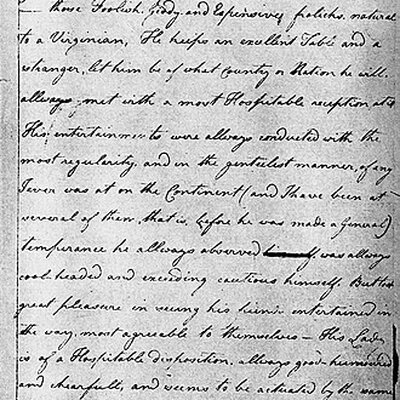 those Foolish, Giddy, and Expensive, frolicks natural
to a Virginian, He keeps an excellent Table and a
stranger, let him be of what Country or Nation he will,
allways met with a most Hospitable reception at it
His entertainments were allways conducted with the
most regularity, and in the genteelist manner, of any
I ever was at on the Continent (and I have been at
several of them, that is, before he was made a General)
temperance he allways observed was allways
cool-headed and exceeding cautious himself. But took
great pleasure in seeing his friends entertained in
the way, most agreeable to themselves – His Lady
is of a Hospitable disposition, allways good-humoured
and chearfull, and seems to be actuated by the same